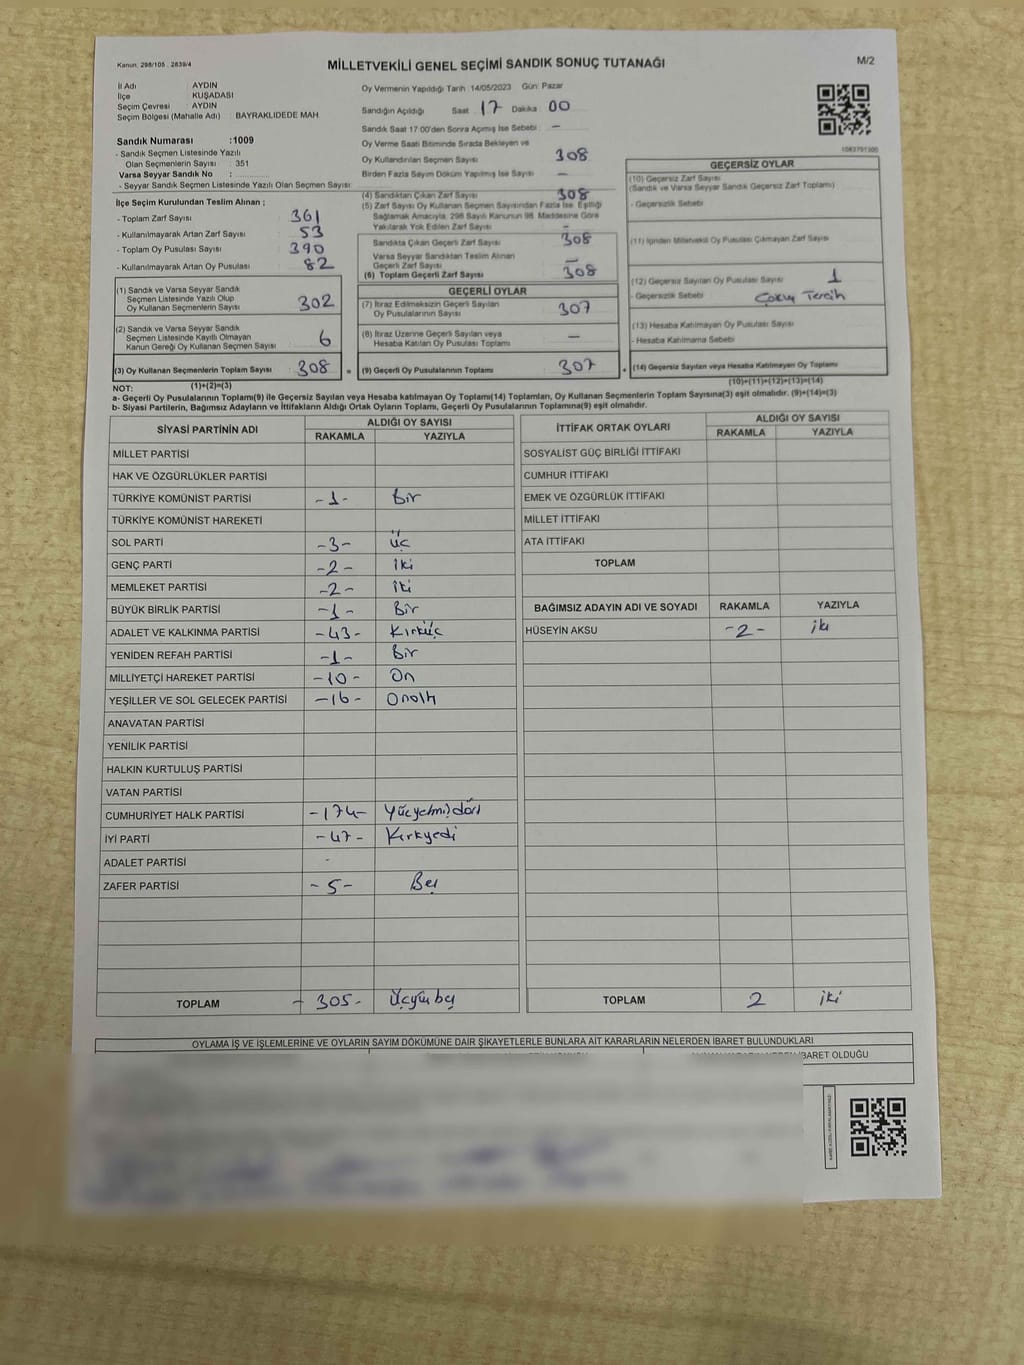 Kanun. 298/105 . 2839/4
MİLLETVEKİLİ GENEL SEÇİMİ SANDIK SONUÇ TUTANAĞI
M/2
İl Adı AYDIN
İlçe KUŞADASI
Seçim Çevresi : AYDIN
Seçim Bölgesi (Mahalle Adı) : BAYRAKLIDEDE MAH.
Sandık Numarası :1009
- Sandık Seçmen Listesinde Yazılı
Olan Seçmenlerin Sayısı : 351
Varsa Seyyar Sandık No :
- Seyyar Sandık Seçmen Listesinde Yazılı Olan Seçmen Sayısı
İlçe Seçim Kurulundan Teslim Alınan ;
- Toplam Zarf Sayısı 361
- Kullanılmayarak Artan Zarf Sayısı 53
- Toplam Oy Pusulası Sayısı 390
- Kullanılmayarak Artan Oy Pusulası 82
(1) Sandık ve Varsa Seyyar Sandık
Seçmen Listesinde Yazılı Olup
Oy Kullanan Seçmenlerin Sayısı 302
(2) Sandık ve Varsa Seyyar Sandık
Seçmen Listesinde Kayıtlı Olmayan
Kanun Gereği Oy Kullanan Seçmen Sayısı 6
(3) Oy Kullanan Seçmenlerin Toplam Sayısı 308 =
Oy Vermenin Yapıldığı Tarih :14/05/2023 Gün: Pazar
Sandığın Açıldığı Saat 17 Dakika 00
Sandık Saat 17:00'den Sonra Açımış İse Sebebi : -
Oy Verme Saati Bitiminde Sırada Bekleyen ve
Oy Kullandırılan Seçmen Sayısı 308
Birden Fazla Sayım Döküm Yapılmış İse Sayısı -
(4) Sandıktan Çıkan Zarf Sayısı 308
(5) Zarf Sayısı Oy Kullanan Seçmen Sayısından Fazla İse Eşitliği
Sağlamak Amacıyla, 298 Sayılı Kanunun 98. Maddesine Göre
Yakılarak Yok Edilen Zarf Sayısı -
Sandıkta Çıkan Geçerli Zarf Sayısı 308
Varsa Seyyar Sandıktan Teslim Alınan
Geçerli Zarf Sayısı -
(6) Toplam Geçerli Zarf Sayısı 308
GEÇERLİ OYLAR
(7) İtiraz Edilmeksizin Geçerli Sayılan
Oy Pusulalarının Sayısı 307
(8) İtiraz Üzerine Geçerli Sayılan veya
Hesaba Katılan Oy Pusulası Toplamı -
(9) Geçerli Oy Pusulalarının Toplamı 307 +
1083791300
GEÇERSİZ OYLAR
(10) Geçersiz Zarf Sayısı
(Sandık ve Varsa Seyyar Sandık Geçersiz Zarf Toplamı)
- Geçersizlik Sebebi
(11) İçinden Milletvekili Oy Pusulası Çıkmayan Zarf Sayısı
(12) Geçersiz Sayılan Oy Pusulası Sayısı 1
- Geçersizlik Sebebi Çoklu Tercih
(13) Hesaba Katılmayan Oy Pusulası Sayısı
- Hesaba Katılmama Sebebi
(14) Geçersiz Sayılan veya Hesaba Katılmayan Oy Toplamı
NOT: (1)+(2)=(3) (10)+(11)+(12)+(13)=(14)
a- Geçerli Oy Pusulalarının Toplamı(9) ile Geçersiz Sayılan veya Hesaba katılmayan Oy Toplamı(14) Toplamları, Oy Kullanan Seçmenlerin Toplam Sayısına(3) eşit olmalıdır. (9)+(14)=(3)
b- Siyasi Partilerin, Bağımsız Adayların ve İttifakların Aldığı Ortak Oyların Toplamı, Geçerli Oy Pusulalarının Toplamına(9) eşit olmalıdır.
SİYASİ PARTİNİN ADI ALDIĞI OY SAYISI
RAKAMLA YAZIYLA
MİLLET PARTİSİ
HAK VE ÖZGÜRLÜKLER PARTİSİ
TÜRKİYE KOMÜNİST PARTİSİ -1- Bir
TÜRKİYE KOMÜNİST HAREKETİ
SOL PARTİ -3- üç
GENÇ PARTİ -2- iki
MEMLEKET PARTİSİ -2- iki
BÜYÜK BİRLİK PARTİSİ -1- Bir
ADALET VE KALKINMA PARTİSİ -43- Kırküç
YENİDEN REFAH PARTİSİ -1- Bir
MİLLİYETÇİ HAREKET PARTİSİ -10- On
YEŞİLLER VE SOL GELECEK PARTİSİ -16- Onaltı
ANAVATAN PARTİSİ
YENİLİK PARTİSİ
HALKIN KURTULUŞ PARTİSİ
VATAN PARTİSİ
CUMHURİYET HALK PARTİSİ -174- Yüzyetmişdört
İYİ PARTİ -47- Kırkyedi
ADALET PARTİSİ -
ZAFER PARTİSİ -5- Beş
TOPLAM - 305- Üçyüzbeş
İTTİFAK ORTAK OYLARI ALDIĞI OY SAYISI
RAKAMLA YAZIYLA
SOSYALİST GÜÇ BİRLİĞİ İTTİFAKI
CUMHUR İTTİFAKI
EMEK VE ÖZGÜRLÜK İTTİFAKI
MİLLET İTTİFAKI
ATA İTTİFAKI
TOPLAM
BAĞIMSIZ ADAYIN ADI VE SOYADI RAKAMLA YAZIYLA
HÜSEYİN AKSU -2- iki
TOPLAM 2 iki
OYLAMA İŞ VE İŞLEMLERİNE VE OYLARIN SAYIM DÖKÜMÜNE DAİR ŞİKAYETLERLE BUNLARA AİT KARARLARIN NELERDEN İBARET BULUNDUKLARI
İBARET OLDUĞU